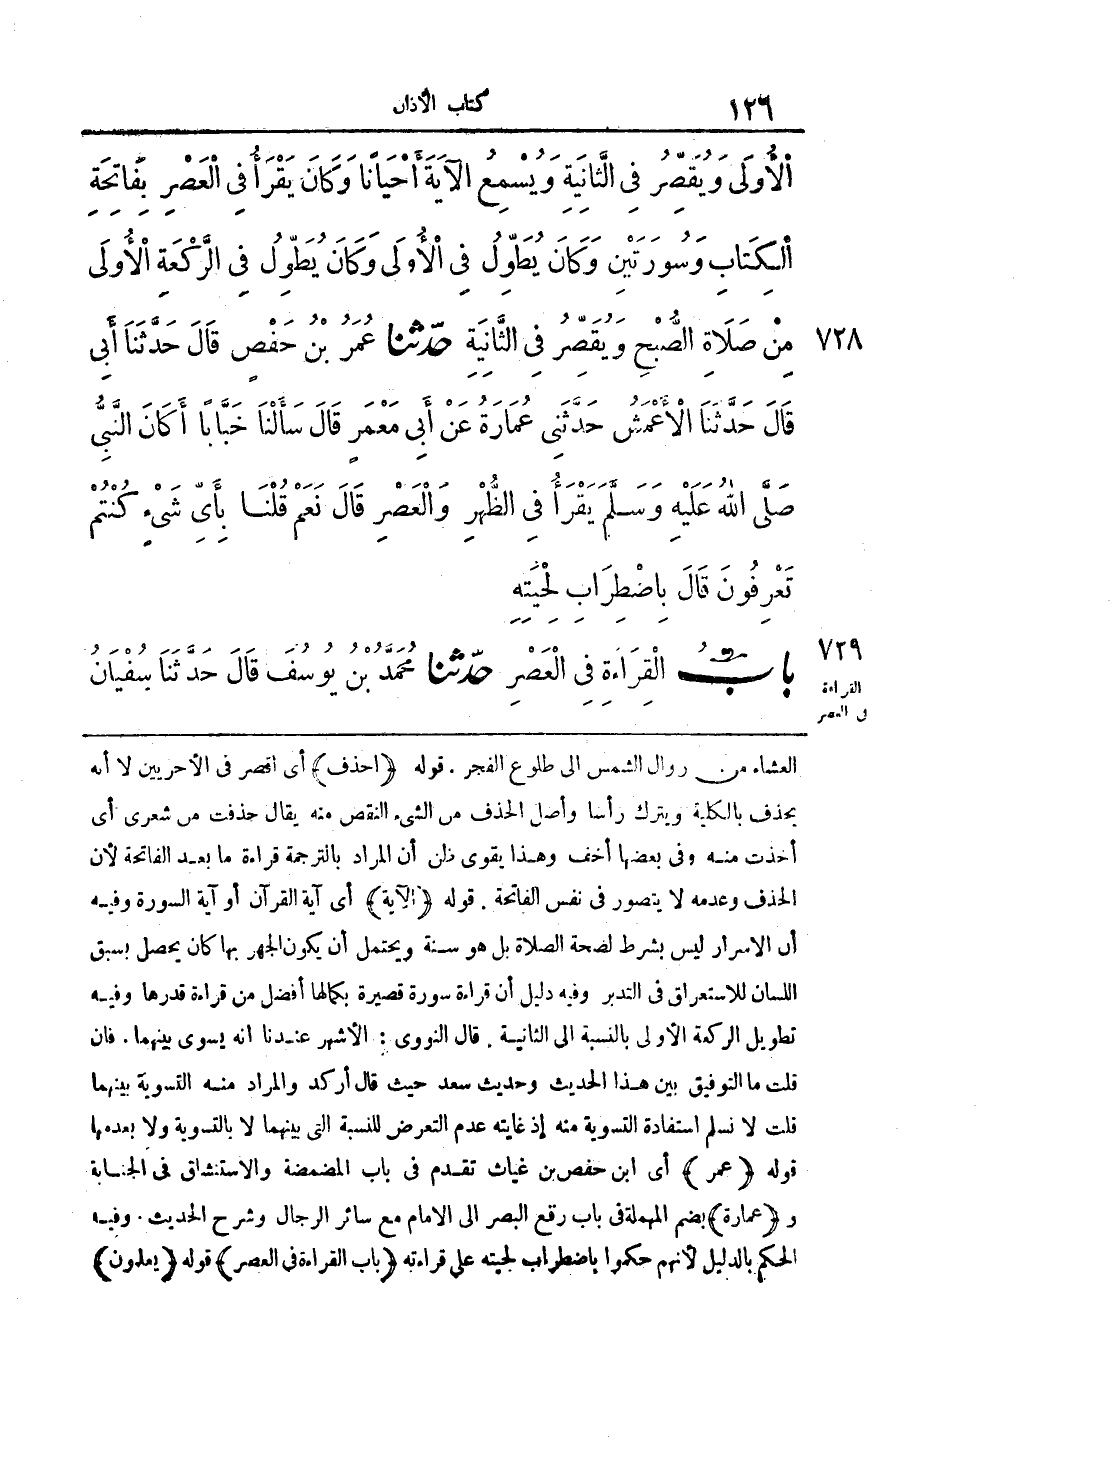 ١٢٦ كتاب الأذان
الْأُولَى وَيُقَصِّرُ فِي الثَّانِيَةِ وَيُسْمِعُ الْآيَةَ أَحْيَانًا وَكَانَ يَقْرَأُ فِي الْعَصْرِ بِفَاتِحَةِ
الْكِتَابِ وَسُورَتَيْنِ وَكَانَ يُطَوِّلُ فِي الْأُولَى وَكَانَ يُطَوِّلُ فِي الرَّكْعَةِ الْأُولَى
٧٢٨ مِنْ صَلَاةِ الصُّبْحِ وَيُقَصِّرُ فِي الثَّانِيَةِ حَدَّثَنَا عُمَرُ بْنُ حَفْصٍ قَالَ حَدَّثَنَا أَبِي
قَالَ حَدَّثَنَا الْأَعْمَشُ حَدَّثَنِي عُمَارَةُ عَنْ أَبِي مَعْمَرٍ قَالَ سَأَلْنَا خَبَّابًا أَكَانَ النَّبِيُّ
صَلَّى اللهُ عَلَيْهِ وَسَلَّمَ يَقْرَأُ فِي الظُّهْرِ وَالْعَصْرِ قَالَ نَعَمْ قُلْنَا بِأَيِّ شَيْءٍ كُنْتُمْ
تَعْرِفُونَ قَالَ بِاضْطِرَابِ لِحْيَتِهِ
٧٢٩ بَابُ الْقِرَاءَةِ فِي الْعَصْرِ حَدَّثَنَا مُحَمَّدُ بْنُ يُوسُفَ قَالَ حَدَّثَنَا سُفْيَانُ
القراءة
فى العصر
العشاء من زوال الشمس الى طلوع الفجر . قوله (احذف) أى اقصر فى الأخريين لا أنه
يحذف بالكلية ويترك رأسا وأصل الحذف من الشىء النقص منه يقال حذفت من شعرى أى
أخذت منه وفى بعضها أخف وهذا يقوى ظن أن المراد بالترجمة قراءة ما بعد الفاتحة لأن
الحذف وعدمه لا يتصور فى نفس الفاتحة . قوله (الآية) أى آية القرآن أو آية السورة وفيه
أن الاسرار ليس بشرط لصحة الصلاة بل هو سنة ويحتمل أن يكون الجهر بها كان يحصل بسبق
اللسان للاستغراق فى التدبر وفيه دليل أن قراءة سورة قصيرة بكمالها أفضل من قراءة قدرها وفيه
تطويل الركعة الأولى بالنسبة الى الثانية . قال النووى : الأشهر عندنا انه يسوى بينهما . فان
قلت ما التوفيق بين هذا الحديث وحديث سعد حيث قال أركد والمراد منه التسوية بينهما
قلت لا نسلم استفادة التسوية منه إذ غايته عدم التعرض للنسبة التى بينهما لا بالتسوية ولا بعدمها
قوله (عمر) أى ابن حفص بن غياث تقدم فى باب المضمضة والاستنشاق فى الجنابة
و (عمارة) بضم المهملة فى باب رفع البصر الى الامام مع سائر الرجال وشرح الحديث . وفيه
الحكم بالدليل لأنهم حكموا باضطراب لحيته على قراءته (باب القراءة فى العصر) قوله (يعلمون)